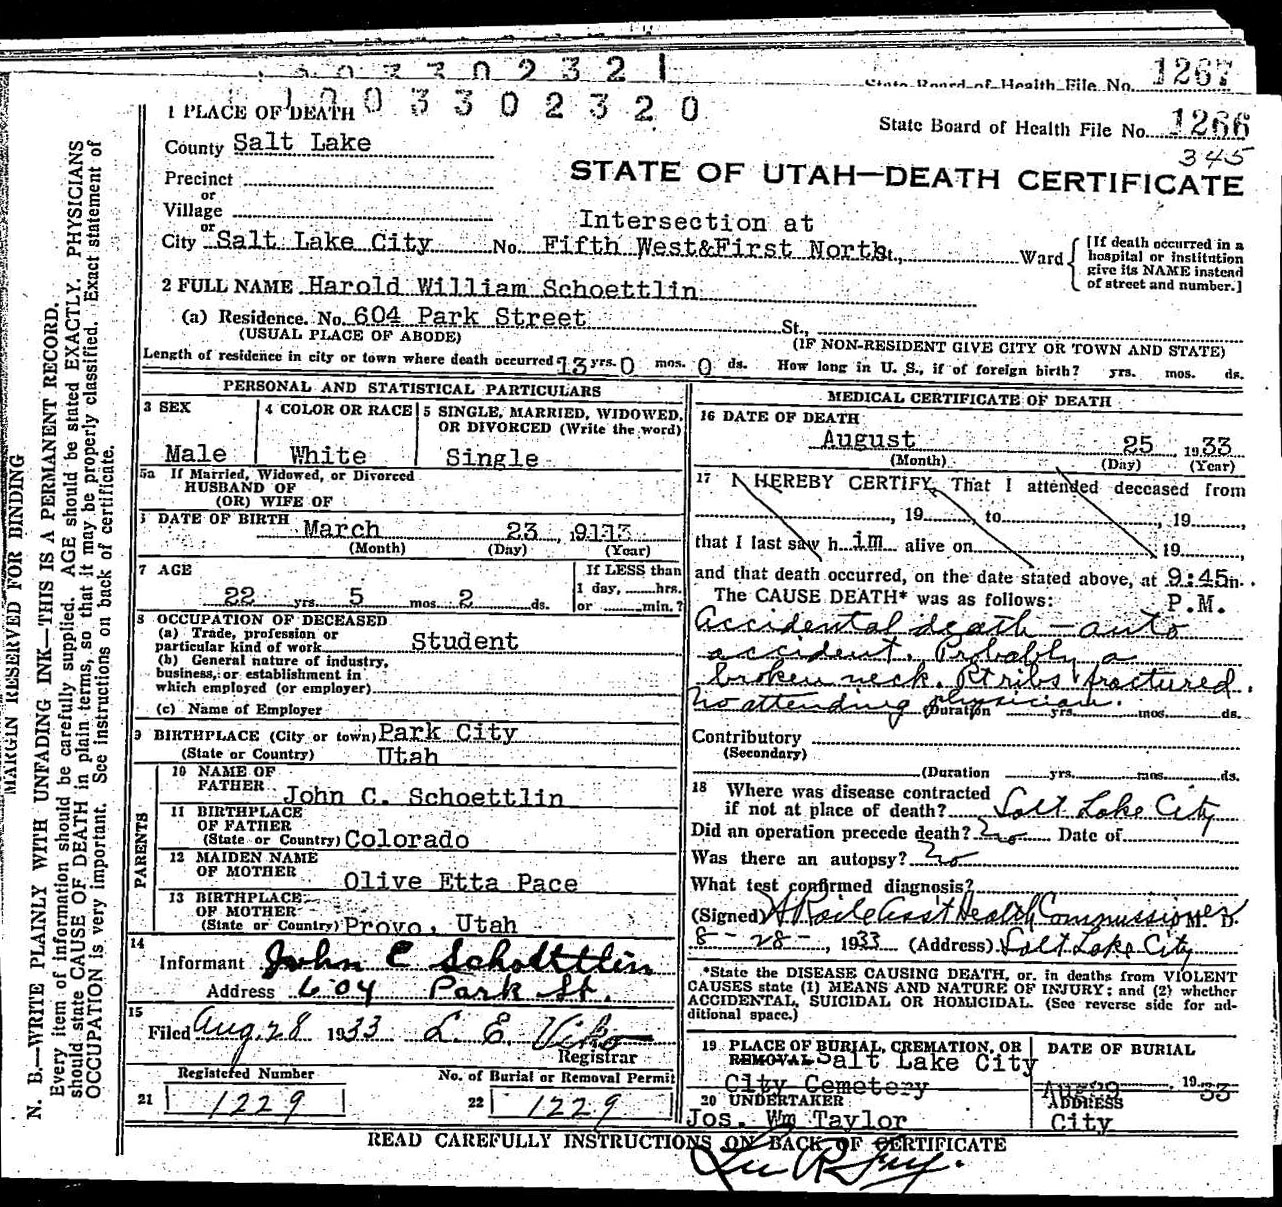 1003302321
State Board of Health File No. 1267
1003302320
1 PLACE OF DEATH
State Board of Health File No. 1266
345
County Salt Lake
STATE OF UTAH—DEATH CERTIFICATE
Precinct
or
Village
or
Intersection at
City Salt Lake City No. Fifth West&First North St., Ward
[If death occurred in a
hospital or institution
give its NAME instead
of street and number.]
2 FULL NAME Harold William Schoettlin
(a) Residence. No. 604 Park Street St.,
(USUAL PLACE OF ABODE) (IF NON-RESIDENT GIVE CITY OR TOWN AND STATE)
Length of residence in city or town where death occurred 13 yrs. 0 mos. 0 ds. How long in U. S., if of foreign birth? yrs. mos. ds.
PERSONAL AND STATISTICAL PARTICULARS
3 SEX
Male
4 COLOR OR RACE
White
5 SINGLE, MARRIED, WIDOWED,
OR DIVORCED (Write the word)
Single
5a If Married, Widowed, or Divorced
HUSBAND OF
(OR) WIFE OF
6 DATE OF BIRTH March 23
(Month) (Day) (Year)
7 AGE
22 yrs. 5 mos. 2 ds.
If LESS than
1 day, hrs.
or min.?
8 OCCUPATION OF DECEASED
(a) Trade, profession or
particular kind of work Student
(b) General nature of industry,
business, or establishment in
which employed (or employer)
(c) Name of Employer
9 BIRTHPLACE (City or town) Park City
(State or Country) Utah
PARENTS
10 NAME OF
FATHER John C. Schoettlin
11 BIRTHPLACE
OF FATHER
(State or Country) Colorado
12 MAIDEN NAME
OF MOTHER Olive Etta Pace
13 BIRTHPLACE
OF MOTHER
(State or Country) Provo, Utah
14
Informant John C Schoettlin
Address 604 Park St.
15
Filed Aug. 28 1933 L. E. Viko
Registrar
Registered Number
21 1229
No. of Burial or Removal Permit
22 1229
MEDICAL CERTIFICATE OF DEATH
16 DATE OF DEATH
August 25, 1933
(Month) (Day) (Year)
17 I HEREBY CERTIFY, That I attended deceased from
, 19 , to , 19 ,
that I last saw h im alive on 19 ,
and that death occurred, on the date stated above, at 9:45 m.
The CAUSE DEATH* was as follows: P.M.
Accidental death — auto
accident. Probably a
broken neck. Rt ribs fractured.
No attending physician.
(Duration yrs. mos. ds.
Contributory
(Secondary)
(Duration yrs. mos. ds.
18 Where was disease contracted
if not at place of death? Salt Lake City
Did an operation precede death? No Date of
Was there an autopsy? No
What test confirmed diagnosis?
(Signed) Ass't Health Commissioner M. D.
8-28-, 1933 (Address) Salt Lake City
*State the DISEASE CAUSING DEATH, or, in deaths from VIOLENT
CAUSES state (1) MEANS AND NATURE OF INJURY; and (2) whether
ACCIDENTAL, SUICIDAL OR HOMICIDAL. (See reverse side for ad-
ditional space.)
19 PLACE OF BURIAL, CREMATION, OR
REMOVAL Salt Lake City
City Cemetery
DATE OF BURIAL
Aug 29, 1933
20 UNDERTAKER
Jos. Wm Taylor
ADDRESS
City
READ CAREFULLY INSTRUCTIONS ON BACK OF CERTIFICATE
MARGIN RESERVED FOR BINDING
N. B.—WRITE PLAINLY WITH UNFADING INK—THIS IS A PERMANENT RECORD.
Every item of information should be carefully supplied. AGE should be stated EXACTLY. PHYSICIANS
should state CAUSE OF DEATH in plain terms, so that it may be properly classified. Exact statement of
OCCUPATION is very important. See instructions on back of certificate.